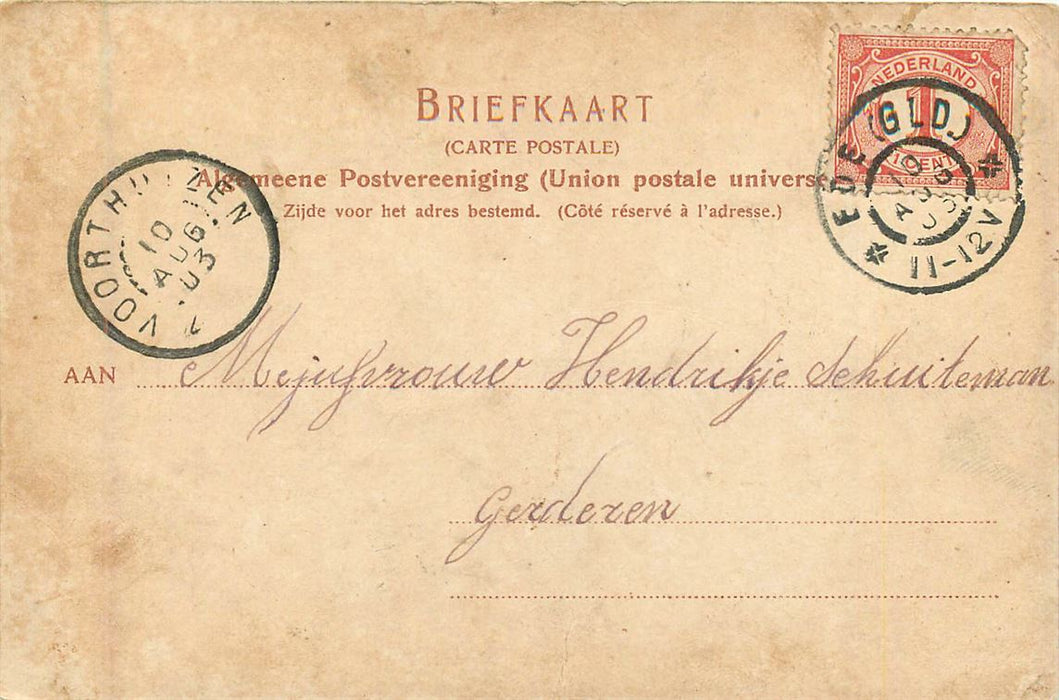 BRIEFKAART
(CARTE POSTALE)
Algemeene Postvereeniging (Union postale univers
Zijde voor het adres bestemd. (Côté réservé à l'adresse.)
NEDERLAND
1
1 CENT
EDE (GLD.)
10 AUG 03
11-12V
VOORTHUIZEN
10
AUG.
03
AAN Mejufvrouw Hendrikje Schuiteman
Gerderen